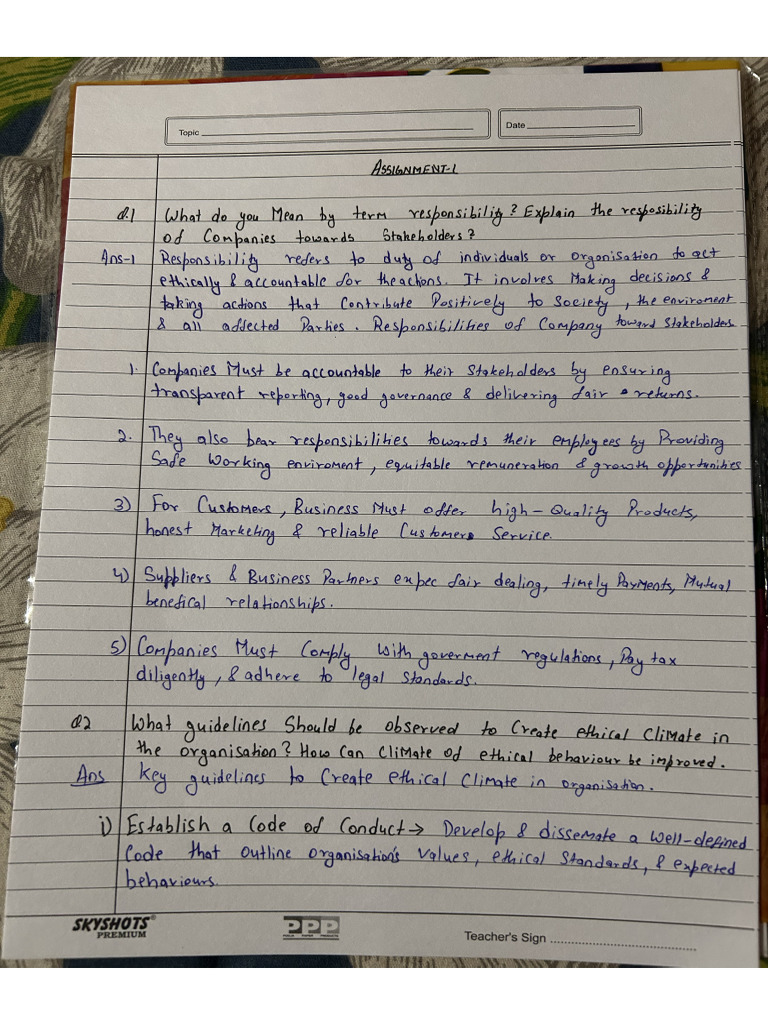 Topic
Date
ASSIGNMENT-1
Q.1 What do you Mean by term responsibility? Explain the resposibility
of Companies towards Stakeholders?
Ans-1 Responsibility refers to duty of individuals or organisation to act
ethically & accountable for the actions. It involves Making decisions &
taking actions that Contribute Positively to Society, the enviroment
& all affected Parties. Responsibilities of Company toward Stakeholders
1. Companies Must be accountable to their Stakeholders by ensuring
transparent reporting, good governance & delivering fair returns.
2. They also bear responsibilities towards their employees by Providing
Safe Working enviroment, equitable remuneration & growth opportunities
3) For Customers, Business Must offer high-Quality Products,
honest Marketing & reliable Customer Service.
4) Suppliers & Business Partners expec fair dealing, timely Payments, Mutual
benefical relationships.
5) Companies Must Comply with goverment regulations, Pay tax
diligently, & adhere to legal Standards.
Q2 What guidelines Should be observed to Create ethical Climate in
the organisation? How Can Climate of ethical behaviour be improved.
Ans Key guidelines to Create ethical Climate in organisation.
i) Establish a Code of Conduct → Develop & dissemate a well-defined
Code that outline organisation's Values, ethical Standards, & expected
behaviours.
SKYSHOTS PPP
PREMIUM
Teacher's Sign